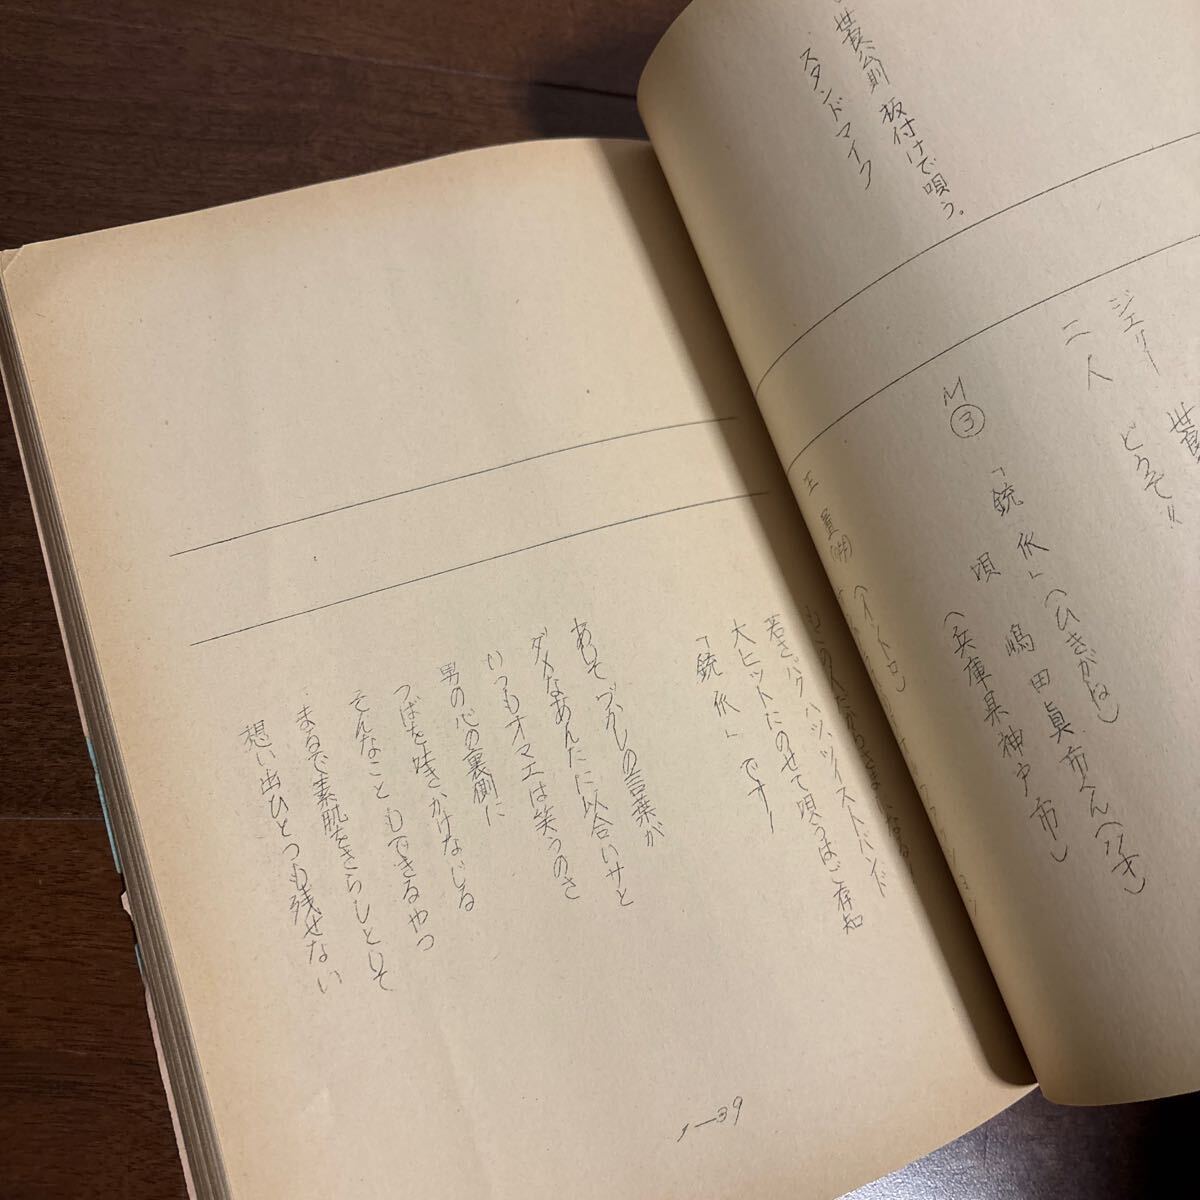 世良公則 板付けで唄う。
スタンドマイク
ジェリー
二人 どうぞ!!
M③ 「銃爪」(ひきがね)
唄 嶋田
(兵庫県神戸市)
(イントロ)
若さバクハツ、ツイストバンド
大ヒットにのせて唄うはご存知
「銃爪」です!
あいそづかしの言葉が
ダメなあんたに似合いサと
いつもオマエは笑うのさ
男の心の裏側に
つばを吐きかけなじる
そんなこともできるやつ
まるで素肌をさらしといて
想い出ひとつも残せない
1—39